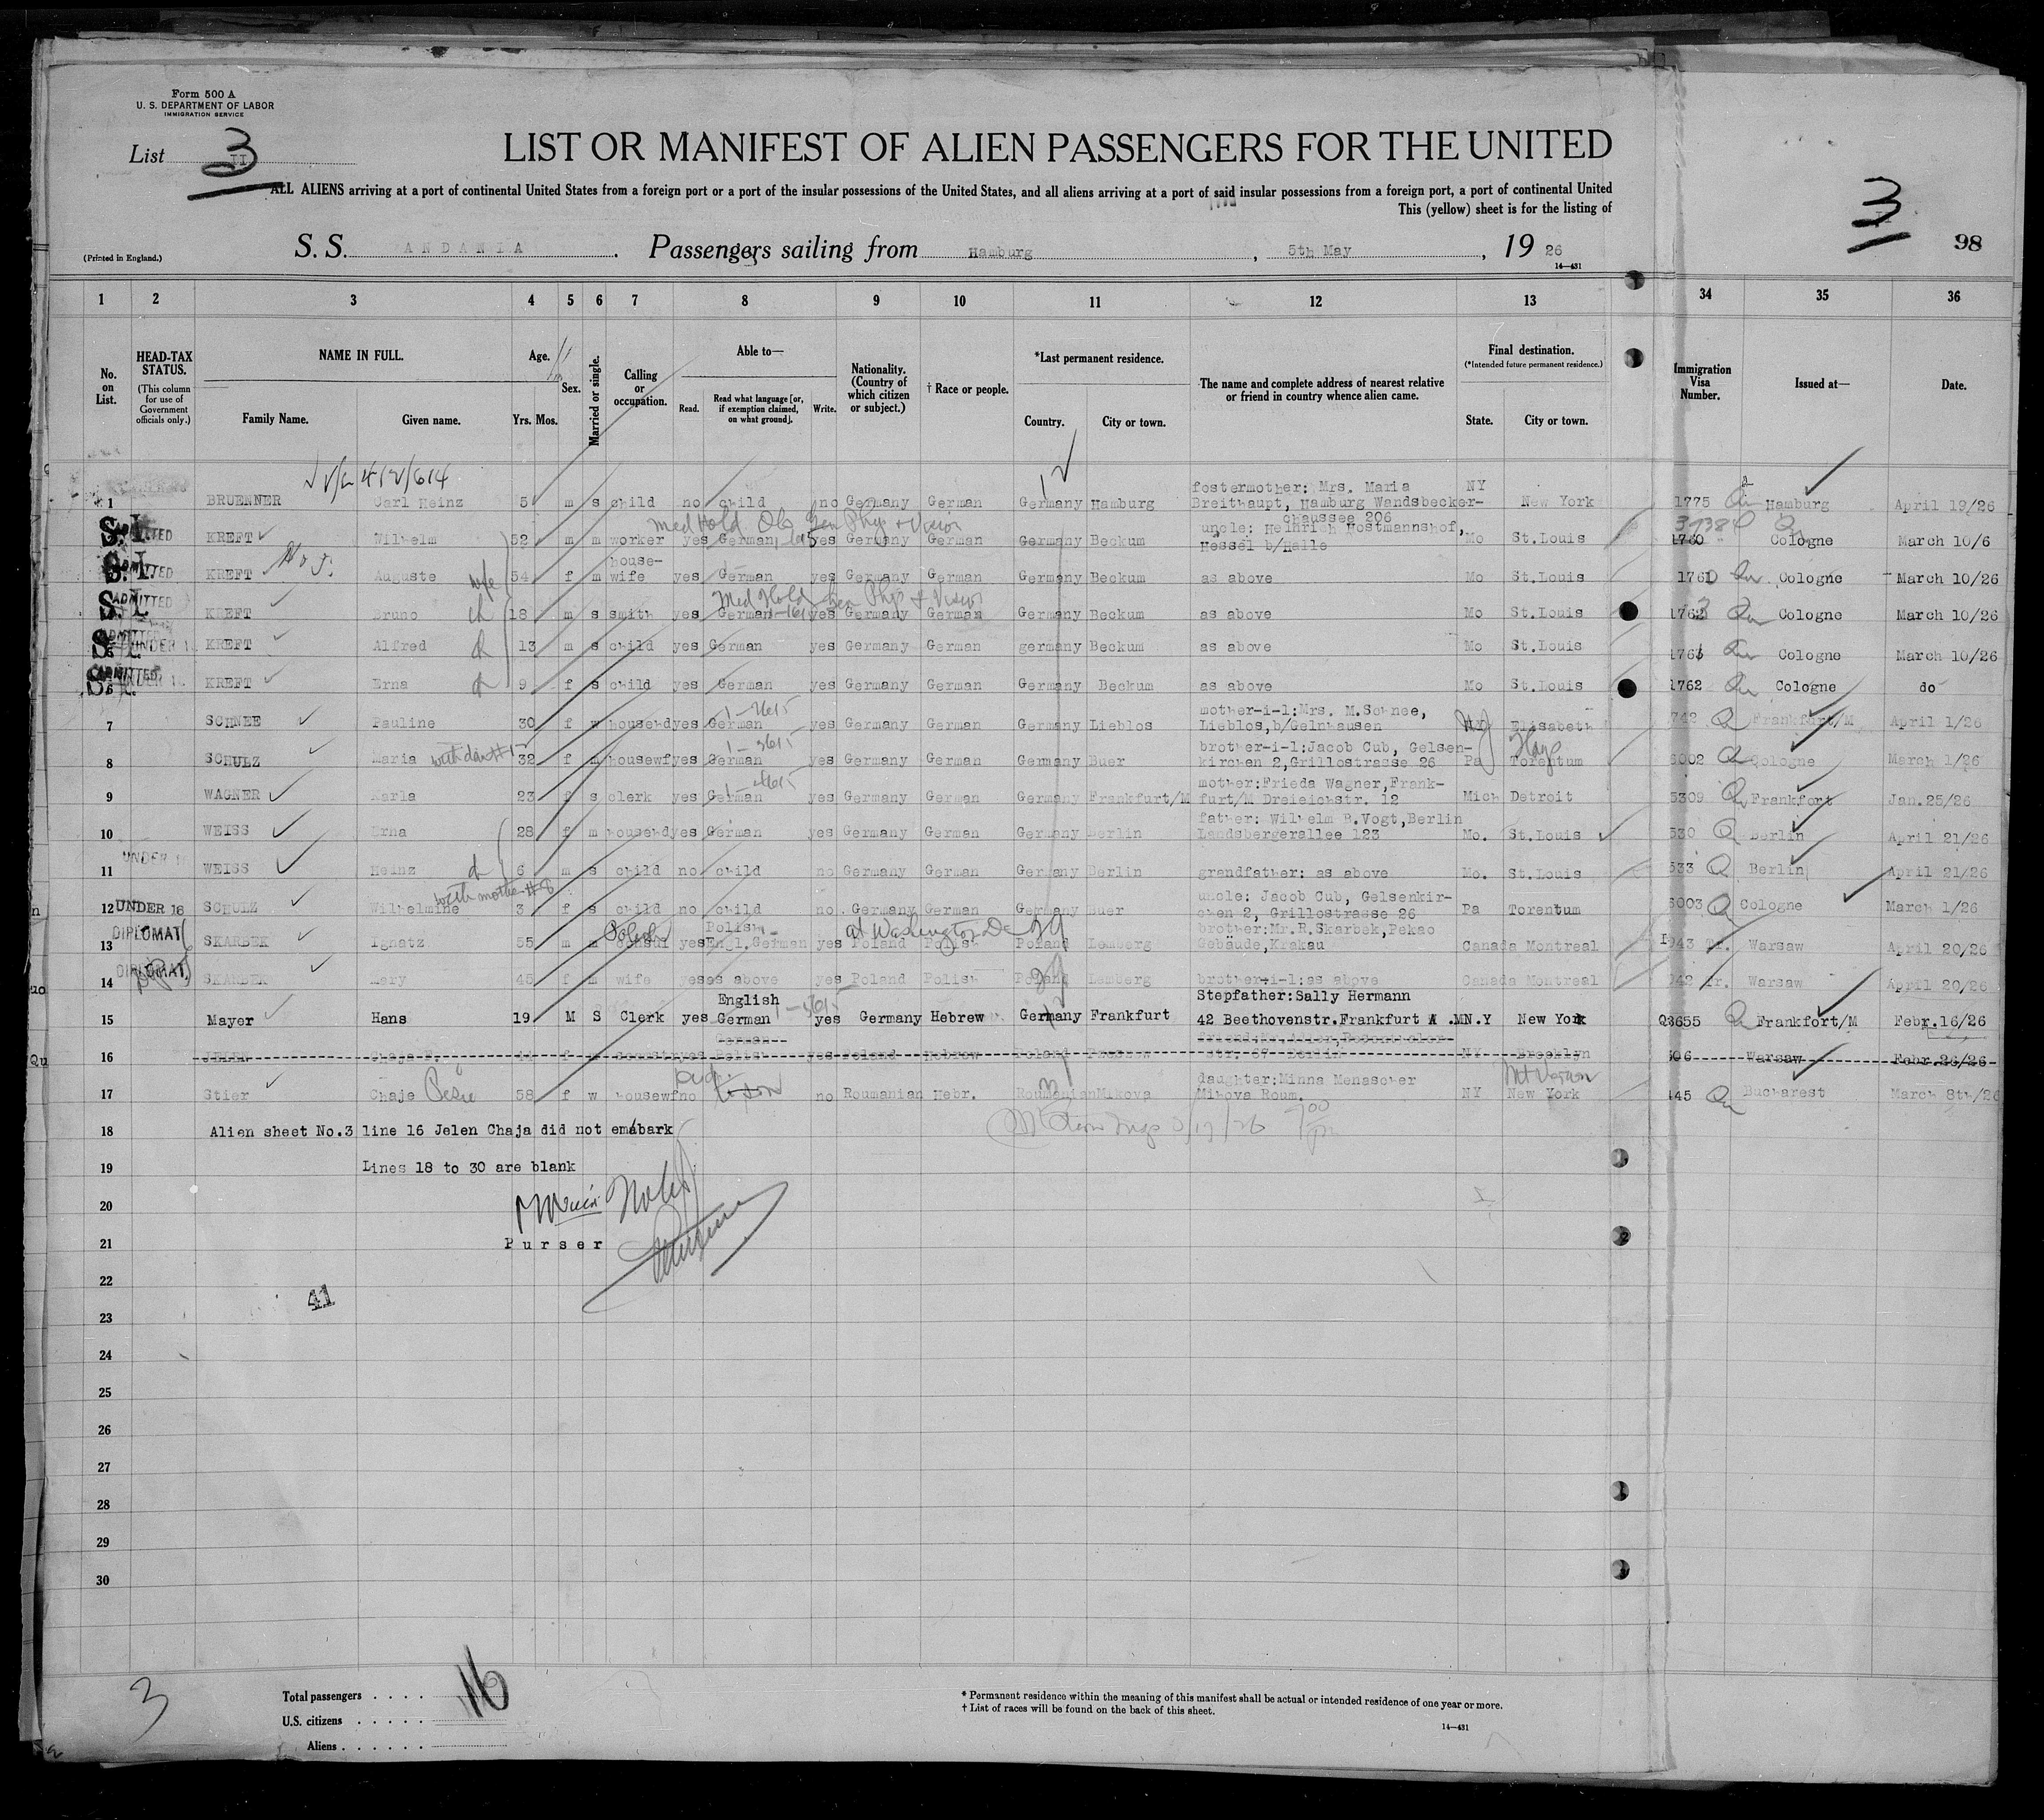 Form 500 A
U. S. DEPARTMENT OF LABOR
IMMIGRATION SERVICE
List 3 II
LIST OR MANIFEST OF ALIEN PASSENGERS FOR THE UNITED
ALL ALIENS arriving at a port of continental United States from a foreign port or a port of the insular possessions of the United States, and all aliens arriving at a port of said insular possessions from a foreign port, a port of continental United
This (yellow) sheet is for the listing of
3
98
(Printed in England.)
S. S. ANDANIA. Passengers sailing from Hamburg, 5th May, 19 26
14-431
1 2 3 4 5 6 7 8 9 10 11 12 13 34 35 36
No. on List.
HEAD-TAX STATUS.
(This column for use of Government officials only.)
NAME IN FULL.
Family Name. Given name.
Age.
Yrs. Mos.
Sex.
Married or single.
Calling or occupation.
Able to—
Read. Read what language [or, if exemption claimed, on what ground]. Write.
Nationality. (Country of which citizen or subject.)
† Race or people.
*Last permanent residence.
Country. City or town.
The name and complete address of nearest relative or friend in country whence alien came.
Final destination.
(*Intended future permanent residence.)
State. City or town.
Immigration Visa Number.
Issued at—
Date.
1 BRUENNER Carl Heinz 5 m s child no child no Germany German Germany Hamburg fostermother: Mrs. Maria Breithaupt, Hamburg Wandsbecker-chaussee 206 NY New York 1775 Hamburg April 19/26
Med Hold Gen Phys & Vision
2 S.I. ADMITTED KREFT Wilhelm 52 m m worker yes German yes Germany German Germany Beckum uncle: Heinrich Hostmannshof, Hessel b/Halle Mo St.Louis 1760 Cologne March 10/6
3 S.I. ADMITTED KREFT Auguste wife 54 f m house-wife yes German yes Germany German Germany Beckum as above Mo St.Louis 1761 Cologne March 10/26
Med Hold Gen Phys & Vision
4 S.I. ADMITTED KREFT Bruno ch 18 m s smith yes German yes Germany German Germany Beckum as above Mo St.Louis 1763 Cologne March 10/26
5 S.I. ADMITTED UNDER 16 KREFT Alfred 13 m s child yes German yes Germany German germany Beckum as above Mo St.Louis Cologne March 10/26
6 S.I. ADMITTED UNDER 16 KREFT Erna 9 f s child yes German yes Germany German Germany Beckum as above Mo St.Louis 1762 Cologne do
7 SCHNEE Pauline 30 f w housewd yes German yes Germany German Germany Lieblos mother-i-l:Mrs. M.Schnee, Lieblos,b/Gelnhausen NJ Elisabeth 742 Frankfurt/M April 1/26
8 SCHULZ Maria 32 f m housewf yes German yes Germany German Germany Buer brother-i-l:Jacob Cub, Gelsen-kirchen 2,Grillostrasse 26 Pa Torentum 6002 Cologne March 1/26
9 WAGNER Karla 23 f s clerk yes German yes Germany German Germany Frankfurt/M mother:Frieda Wagner,Frank-furt/M Dreieichstr. 12 Mich Detroit 5309 Frankfort Jan.25/26
10 WEISS Erna 28 f m housewd yes German yes Germany German Germany Berlin father: Wilhelm R.Vogt,Berlin Landsbergerallee 123 Mo. St.Louis 530 Berlin April 21/26
11 UNDER 16 WEISS Heinz 6 m s child no child no Germany German Germany Berlin grandfather: as above Mo. St.Louis 533 Berlin April 21/26
with mother #8
12 UNDER 16 SCHULZ Wilhelmine 3 f s child no child no Germany German Germany Buer uncle: Jacob Cub, Gelsenkir-chen 2, Grillostrasse 26 Pa Torentum 6003 Cologne March 1/26
13 DIPLOMAT SKARBEK Ignatz 55 m m Polish consul yes Polish Engl.German yes at Washington DC Poland Polish Poland Lemberg brother:Mr.R.Skarbek,Pekao Gebäude,Krakau Canada Montreal 1943 Pr. Warsaw April 20/26
14 DIPLOMAT SKARBEK Mary 45 f m wife yes as above yes Poland Polish Poland Lemberg brother-i-l:as above Canada Montreal 942 Pr. Warsaw April 20/26
15 Mayer Hans 19 M S Clerk yes English German yes Germany Hebrew Germany Frankfurt Stepfather:Sally Hermann 42 Beethovenstr.Frankfurt A.M N.Y New York Q3655 Frankfort/M Febr.16/26
16 JELEN Chaja f yes Polish yes Poland Hebrew Poland NY Brooklyn 506 Warsaw Febr.26/26
17 Stier Chaje Pesie 58 f w housewf no no Roumanian Hebr. Roumanian Mikova daughter:Minna Menascher Mikova Roum. NY New York Mt Vernon 445 Bucharest March 8th/26
18 Alien sheet No.3 line 16 Jelen Chaja did not embark
19 Lines 18 to 30 are blank
20
21 Purser
22
41
23
24
25
26
27
28
29
30
3
Total passengers . . . . 16
U.S. citizens . . . . .
Aliens . . . . . .
* Permanent residence within the meaning of this manifest shall be actual or intended residence of one year or more.
† List of races will be found on the back of this sheet.
14-431